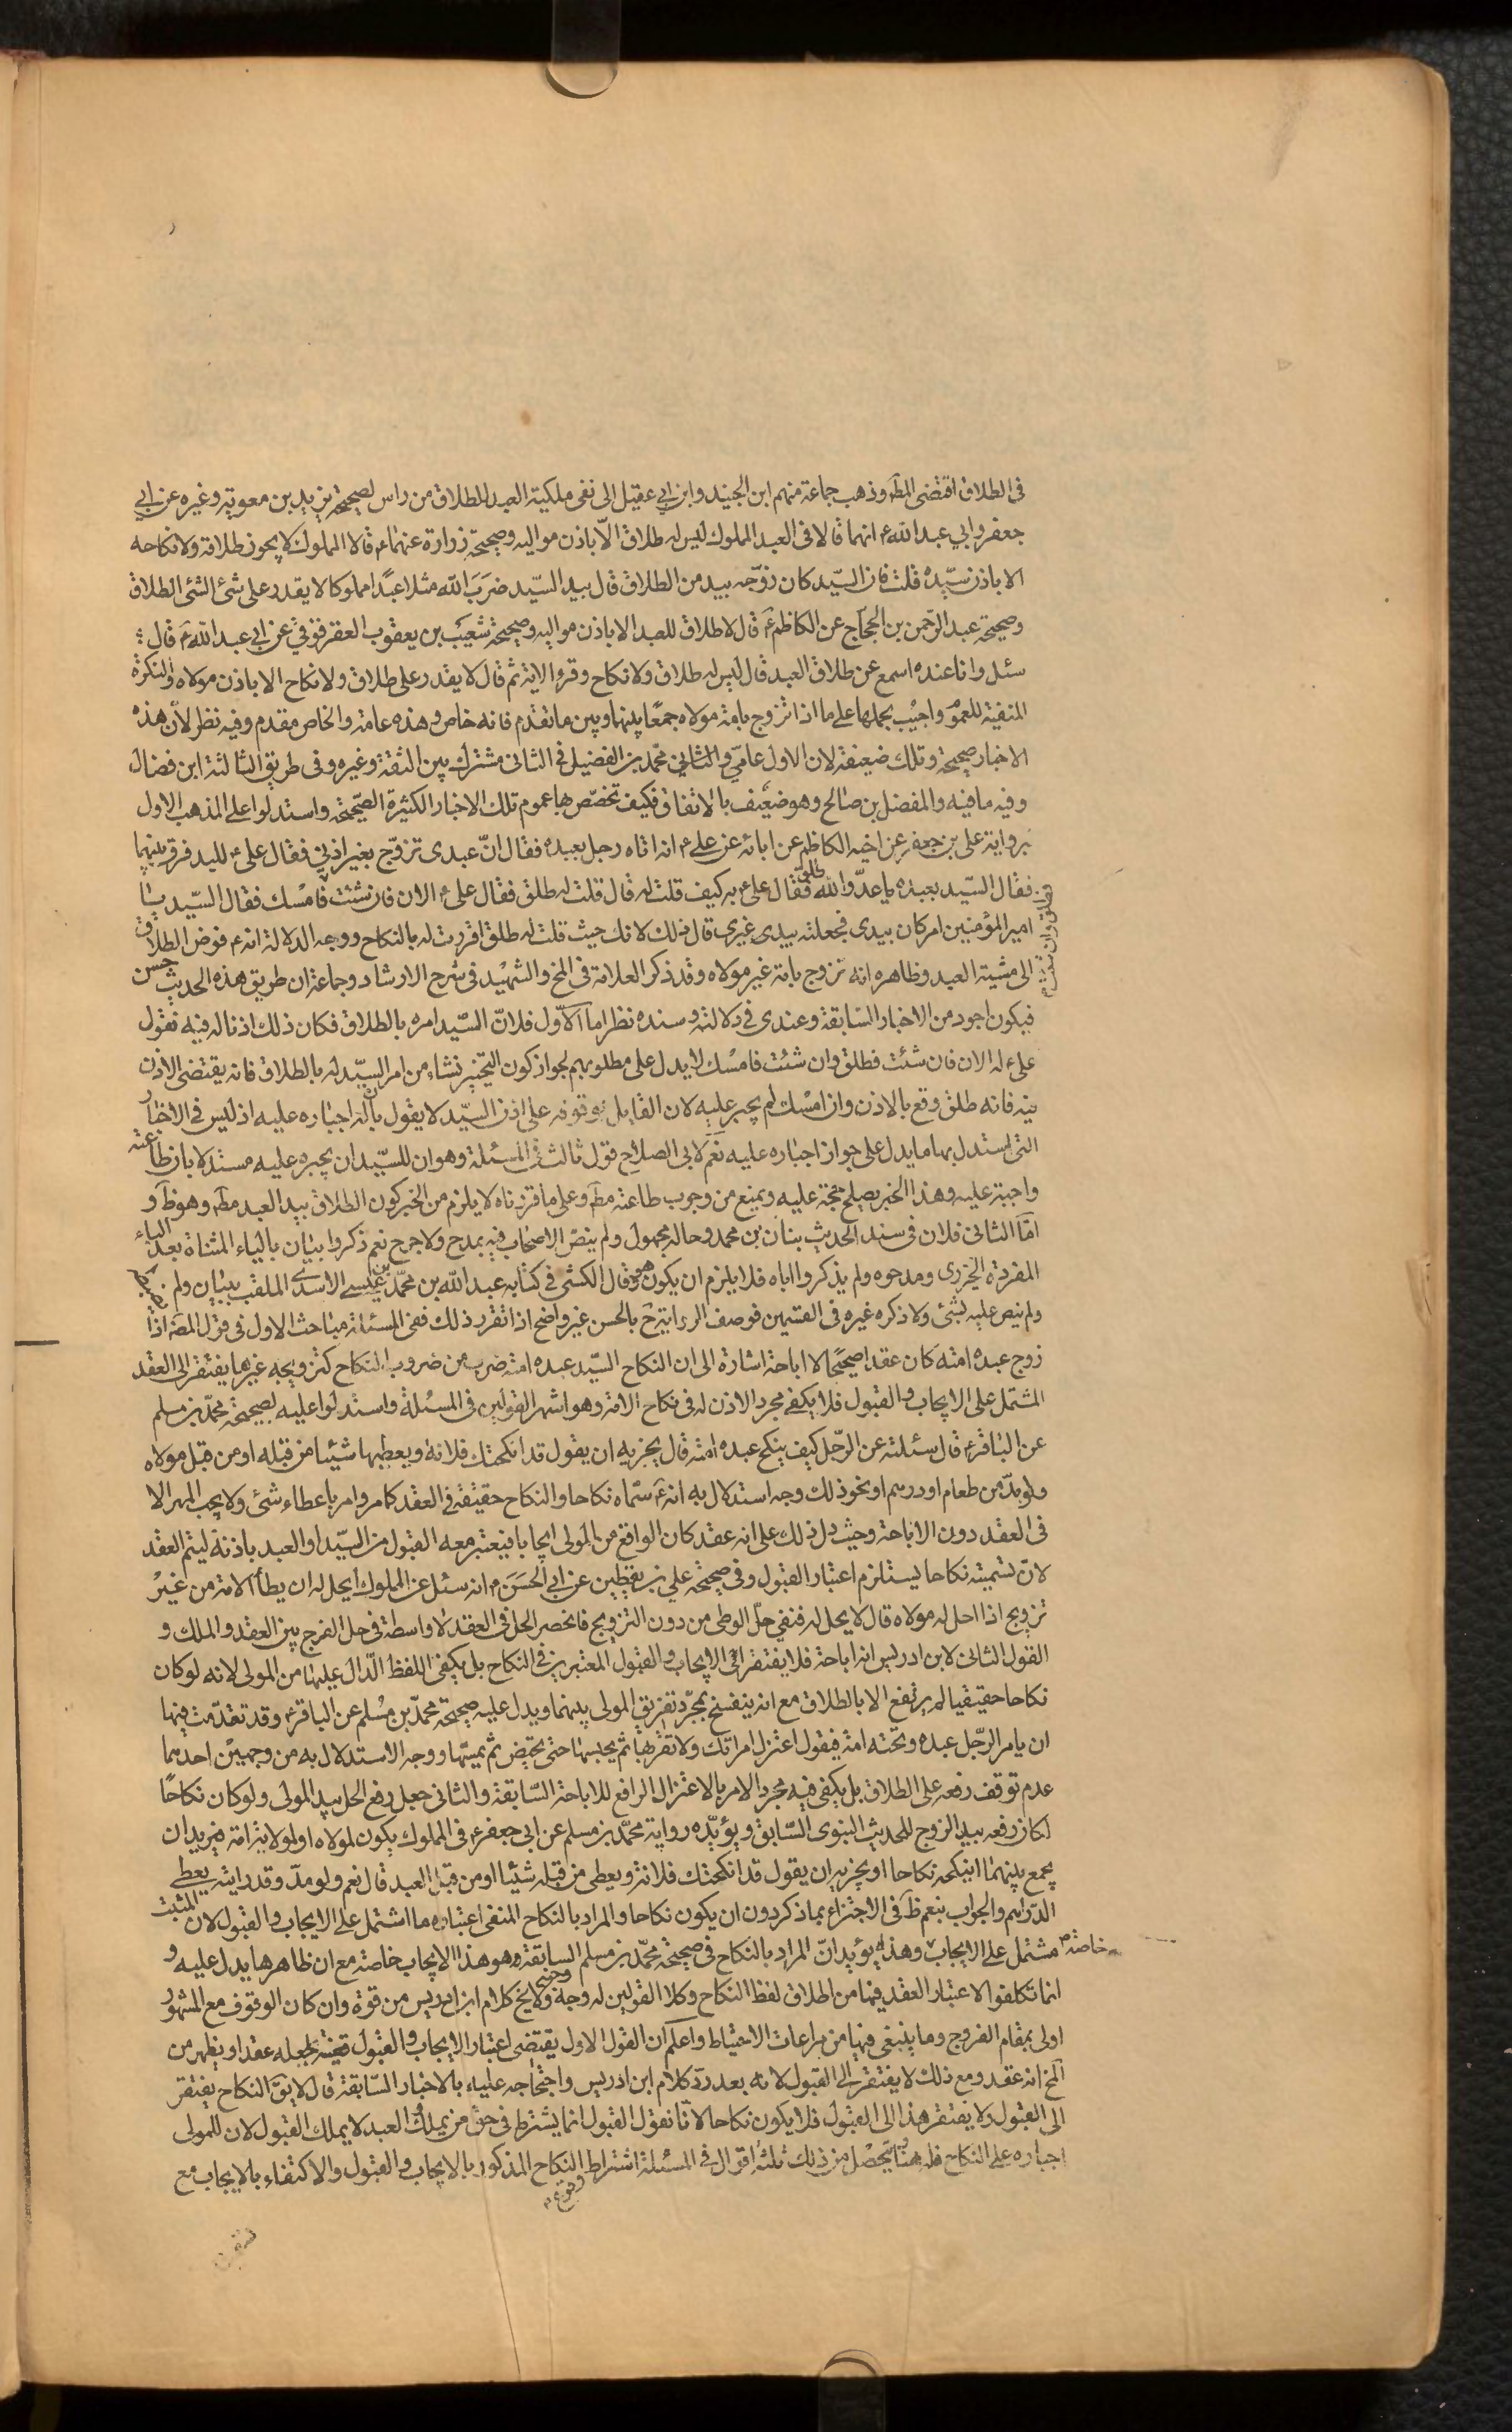 فى الطلاق اقتضى المظ وذهب جماعة منهم ابن الجنيد وابن ابي عقيل الى نفى ملكية العبد للطلاق من راس لصحيحة بريد بن معوية وغيره عن ابي
جعفر وابي عبد الله ع انهما قالا فى العبد المملوك ليس له طلاق الّا باذن مواليه وصحيحة زرارة عنهما ع قالا المملوك لا يجوز طلاقه ولا نكاحه
الا باذن سيّده قلت فان السيّد كان زوّجه بيد من الطلاق قال بيد السيّد ضرَبَ الله مثلا عبدًا مملوكا لا يقدر على شئ الشئ الطلاق
وصحيحة عبد الرّحمن بن الحجّاج عن الكاظم ع قال لا طلاق للعبد الا باذن مواليه وصحيحة شعيب بن يعقوب العقرقوفى عن ابي عبد الله ع قال
سئل وانا عنده اسمع عن طلاق العبد قال ليس له طلاق ولا نكاح وقرء الاية ثم قال لا يقدر على طلاق ولا نكاح الا باذن مولاه والنكرة
المنفية للعموم واجيب بحملها على ما اذا تزوج بامة مولاه جمعًا بينها وبين ما تقدم فانه خاص وهذه عامة والخاص مقدم وفيه نظر لأن هذه
الاخبار صحيحة وتلك ضعيفة لان الاول عامّى والثاني محمّد بن الفضيل فى الثانى مشترك بين الثقة وغيره وفى طريق الثالثة ابن فضال
وفيه ما فيه والمفضل بن صالح وهو ضعيف بالاتفاق فكيف تخصّص بها عموم تلك الاخبار الكثيرة الصّحيحة واستدلوا على المذهب الاول
برواية على بن جعفر عن اخيه الكاظم عن ابائه عن على ع انه اتاه رجل بعبده فقال انّ عبدى تزوّج بغير اذنى فقال على ع للسيد فرق بينهما
فقال السيّد بعبده يا عدوّ الله طلق فقال على ع به كيف قلت له قال قلت له طلق فقال على ع الان فان شئت فامسك فقال السيّد يا
امير المؤمنين امر كان بيدى فجعلته بيدى غيرى قال ذلك لانك حيث قلت له طلق اقررت له بالنكاح ووجه الدلالة انه ع فوض الطلاق
الى مشية العبد وظاهره انه تزوج بامة غير مولاه وقد ذكر العلامة فى المخ والشهيد فى شرح الارشاد وجماعة ان طريق هذه الحديث حسن
فيكون اجود من الاخبار السّابقة وعندى فى دلالته وسنده نظر اما الاّول فلانّ السّيد امره بالطلاق فكان ذلك اذنا له فيه فقول
على ع له الان فان شئت فطلق وان شئت فامسك لا يدل على مطلوبهم لجواز كون التخيير نشاء من امر السيّد له بالطلاق فانه يقتضى الاذن
فيه فانه طلق وقع بالاذن وان امسك لم يجبر عليه لان القايل بوقوفه على اذن السيّد لا يقول بأن له اجباره عليه اذ ليس فى الاخبار
التى استدل بها ما يدل على جواز اجباره عليه نعم لابى الصلاح قول ثالث فى المسئلة وهو ان للسيّد ان يجبره عليه مستدلا بان طاعته
واجبة عليه وهذا الخبر يصلح حجة عليه ويمنع من وجوب طاعته مط وعلى ما قررناه لا يلزم من الخبر كون الطلاق بيد العبد مط وهو ظ و
امّا الثانى فلان فى سند الحديث بنان بن محمد وحاله مجهول ولم ينصّ الاصحاب فيه بمدح ولا جرح نعم ذكروا بيان بالياء المثناة بعد الباء
المفردة الجزرى ومدحوه ولم يذكروا اباه فلا يلزم ان يكون هو وقال الكشى فى كتابه عبد الله بن محمّد بن عيسى الاسدى الملقب ببنان ولم
ولم ينص عليه بشئ ولا ذكره غيره فى القسمين فوصف الرواية ح بالحسن غير واضح اذا تقرر ذلك ففى المسئلة مباحث الاول فى قول المص اذا
زوج عبده امته كان عقدا صحيحًا لا اباحة اشارة الى ان النكاح السيّد عبده امته ضرب من ضروب النكاح كتزويجه غيرها يفتقر الى العقد
المشتمل على الايجاب والقبول فلا يكفى مجرد الاذن له فى نكاح الامة وهو اشهر القولين فى المسئلة واستدلوا عليه لصحيحة محمّد بن مسلم
عن الباقر ع قال سئلته عن الرّجل كيف ينكح عبده امته قال يجزيه ان يقول قد انكحتك فلانة ويعطيها شيئا من قبله او من قبل مولاه
ولو مدّ من طعام او درهم او نحو ذلك وجه استدلال به انه ع سمّاه نكاحا والنكاح حقيقة فى العقد كما مر وامر باعطاء شئ ولا يجب المهر الا
فى العقد دون الاباحة وحيث دل ذلك على انه عقد كان الواقع من المولى ايجابا فيعتبر معه القبول من السيّد او العبد باذنه ليتم العقد
لانّ تسميته نكاحا يستلزم اعتبار القبول وفى صحيحة على بن يقطين عن ابى الحسن ع انه سئل عن المملوك ايحل له ان يطأ الامة من غير
تزويج اذا احل له مولاه قال لا يحل له فنفى حلّ الوطى من دون التزويج فانحصر الحل فى العقد لا واسطة فى حل الفرج بين العقد والملك و
القول الثانى لابن ادريس انه اباحة فلا يفتقر الى الايجاب والقبول المعتبرين فى النكاح بل يكفى اللفظ الدّال عليها من المولى لانه لو كان
نكاحا حقيقيا لم يرتفع الا بالطلاق مع انه ينفسخ بمجرّد تفريق المولى بينهما ويدل عليه صحيحة محمّد بن مسلم عن الباقر ع وقد تقدّمت فيها
ان يامر الرّجل عبده وتحته امته فيقول اعتزل امرأتك ولا تقربها ثم يحبسها حتى تحيض ثم يمسّها ووجه الاستدلال به من وجهين احدهما
عدم توقف رفعه على الطلاق بل يكفى فيه مجرد الامر بالاعتزال الرافع للاباحة السّابقة والثانى جعل رفع الحل بيد المولى ولو كان نكاحًا
لكان رفعه بيد الزوج للحديث النبوى السّابق ويؤيّده رواية محمّد بن مسلم عن ابى جعفر ع فى المملوك يكون لمولاه او لمولاته امة فيريد ان
يجمع بينهما اينكحه نكاحا او يجزيه ان يقول قد انكحتك فلانة ويعطى من قبله شيئا او من قبل العبد قال نعم ولو مدّ وقد رايته يعطى
الدّراهم والجواب بنعم ظ فى الاجتزاء بما ذكر دون ان يكون نكاحا والمراد بالنكاح المنفى اعتباره ما اشتمل على الايجاب والقبول لان المثبت
مشتمل على الايجاب خاصة وهذا يؤيد انّ المراد بالنكاح فى صحيحة محمّد بن مسلم السابقة وهو هذا الايجاب خاصة مع ان ظاهرها يدل عليه و
انما تكلفوا الاعتبار العقد فيها من اطلاق لفظ النكاح وكلا القولين له وجه ولا يخ كلام ابن ادريس من قوة وان كان الوقوف مع المشهور
اولى بمقام الفروج وما ينبغى فيها من مراعات الاحتياط واعلم ان القول الاول يقتضى اعتبار الايجاب والقبول قضية لجعله عقدا ويظهر من
المخ انه عقد ومع ذلك لا يفتقر الى القبول لانه بعد ردّ كلام ابن ادريس واحتجاجه عليه بالاخبار السّابقة قال لا يق النكاح يفتقر
الى القبول ولا يفتقر هذا الى القبول فلا يكون نكاحا لانّا نقول القبول انما يشترط فى حق من يملك والعبد لا يملك القبول لان للمولى
اجباره على النكاح فله هنا يتحصّل من ذلك ثلثة اقوال فى المسئلة اشتراط النكاح المذكور بالايجاب والقبول والاكتفاء بالايجاب مع